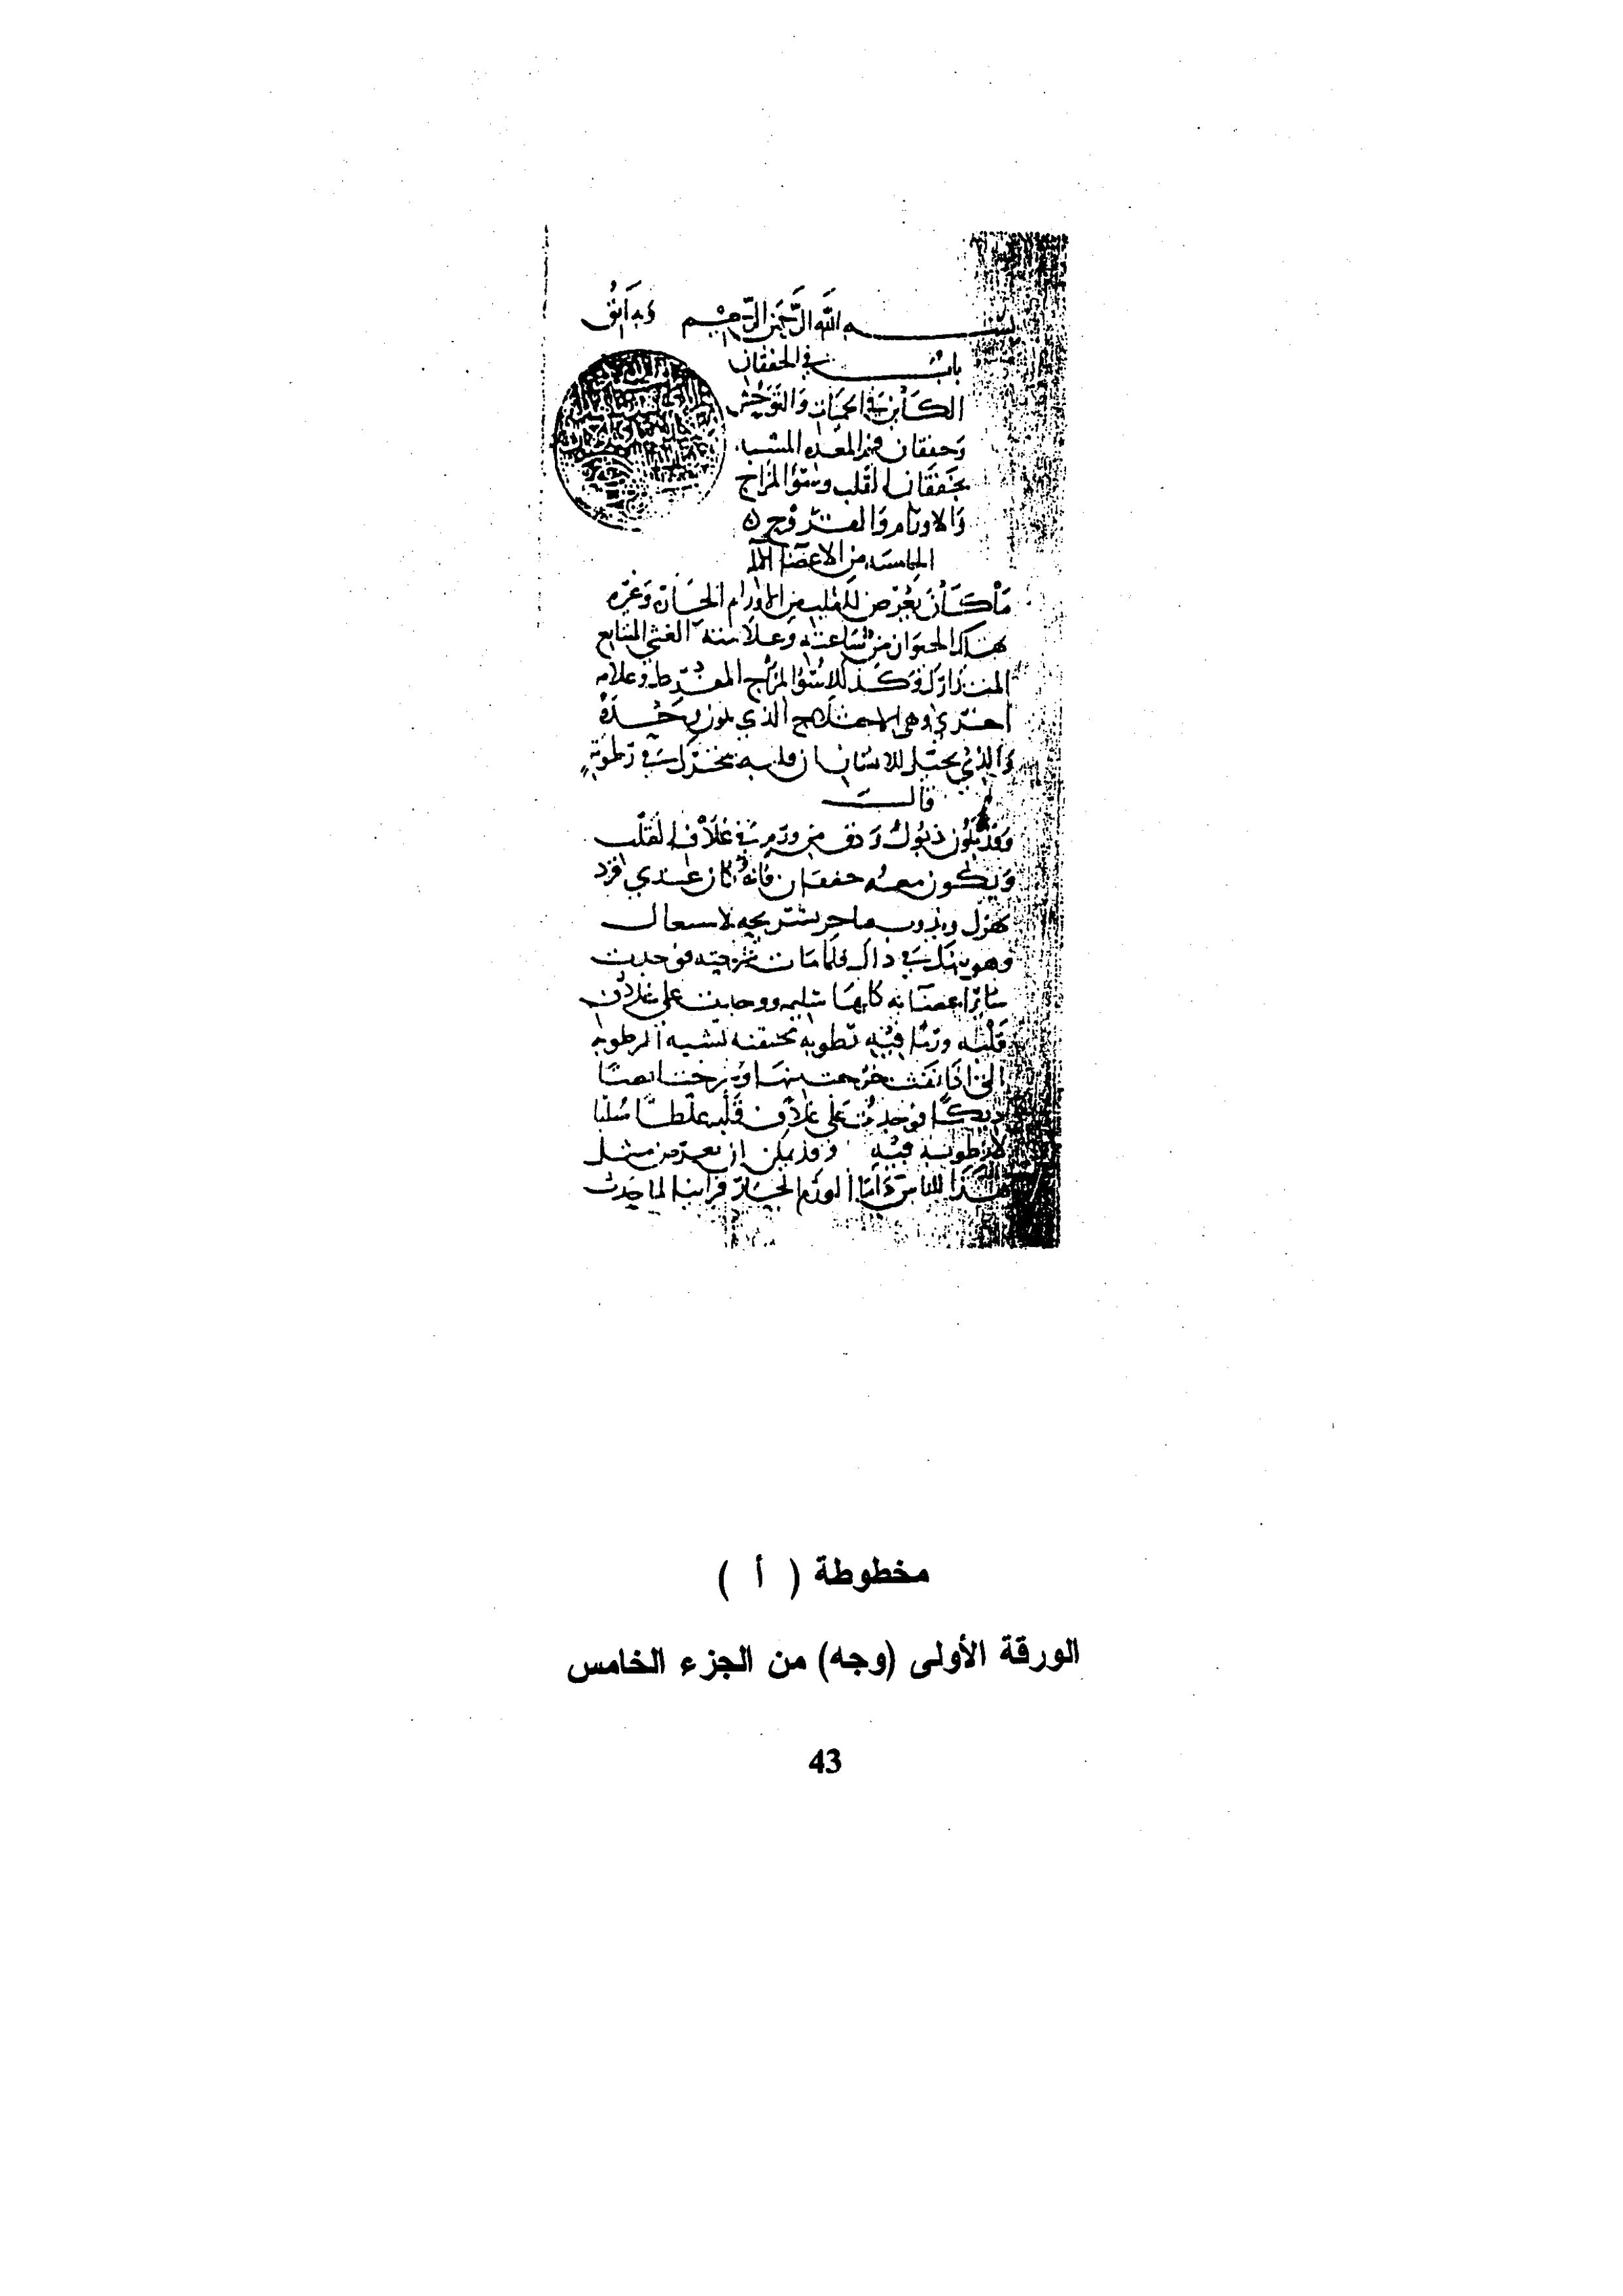 بسم الله الرحمن الرحيم وبه أثق
باب في الخفقان
الكائن في الحميات والتوحش
وخفقان فم المعدة المشبه
بخفقان القلب وسوء المزاج
والاورام والقروح
الخامسة من الاعضا الالمة
ما كان يعرض للقلب من الاورام الحارة وغيره
هلاك الحيوان من ساعته وعلامته الغشي المتابع
المتدارك وكذلك سوء المزاج المفرط وعلامة
اخرى وهي الاختلاج الذي يكون وحده
والذي يخيل للانسان ان قلبه يتحرك في رطوبة
قال
وقد يكون ذبول ودق من ورم في غلاف القلب
ويكون معه خفقان فانه كان عندي قرد
يهزل ويذوب تشريحه لاشتغال
وهو يهلك في ذاك فلما مات شرحته فوجدت
سائر اعضائه كلها سليمة ووجدت على غلاف
قلبه ورما فيه رطوبة محتقنة تشبه الرطوبة
التي اذا خرجت منها وشرحت ايضا
ديكا فوجدت على غلاف قلبه غلظا صلبا
لا رطوبة فيه وقد يمكن ان يعرض مثل
هذا للناس واما الورم الحار فرايناه لما حدث
مخطوطة ( أ )
الورقة الأولى (وجه) من الجزء الخامس
43